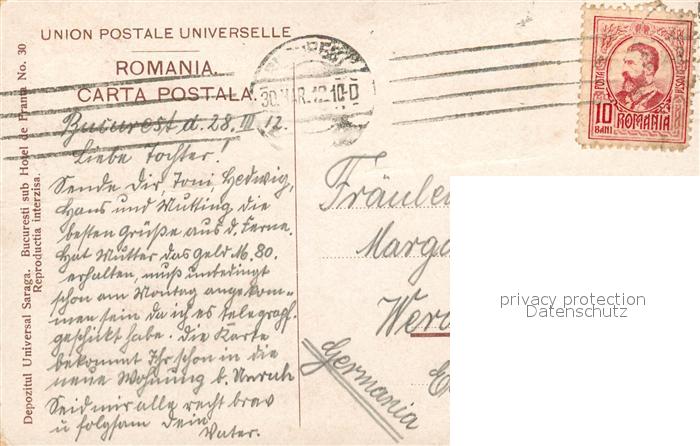 UNION POSTALE UNIVERSELLE
ROMANIA.
CARTA POSTALA.
30 MAR. 12. 10-D
POSTA
10 BANI
ROMANIA
Bucurest d. 28. III 12.
Liebe Tochter!
Sende Dir, Toni, Hedwig,
Hans und Mutting die
besten Grüße aus d. Ferne.
Hat Mutter das Geld M. 80.
erhalten, muß unbedingt
schon am Montag angekom=
men sein da ich es telegraf.
geschickt habe. Die Karte
bekommt Ihr schon in die
neue Wohnung b. Unruh
Seid mir alle recht brav
u folgsam Dein
Vater.
Fräulei
Marg
Werd
Germania
privacy protection
Datenschutz
Depozitul Universal Saraga. Bucuresti sub Hotel de Franta No. 30
Reproductia interzisa.